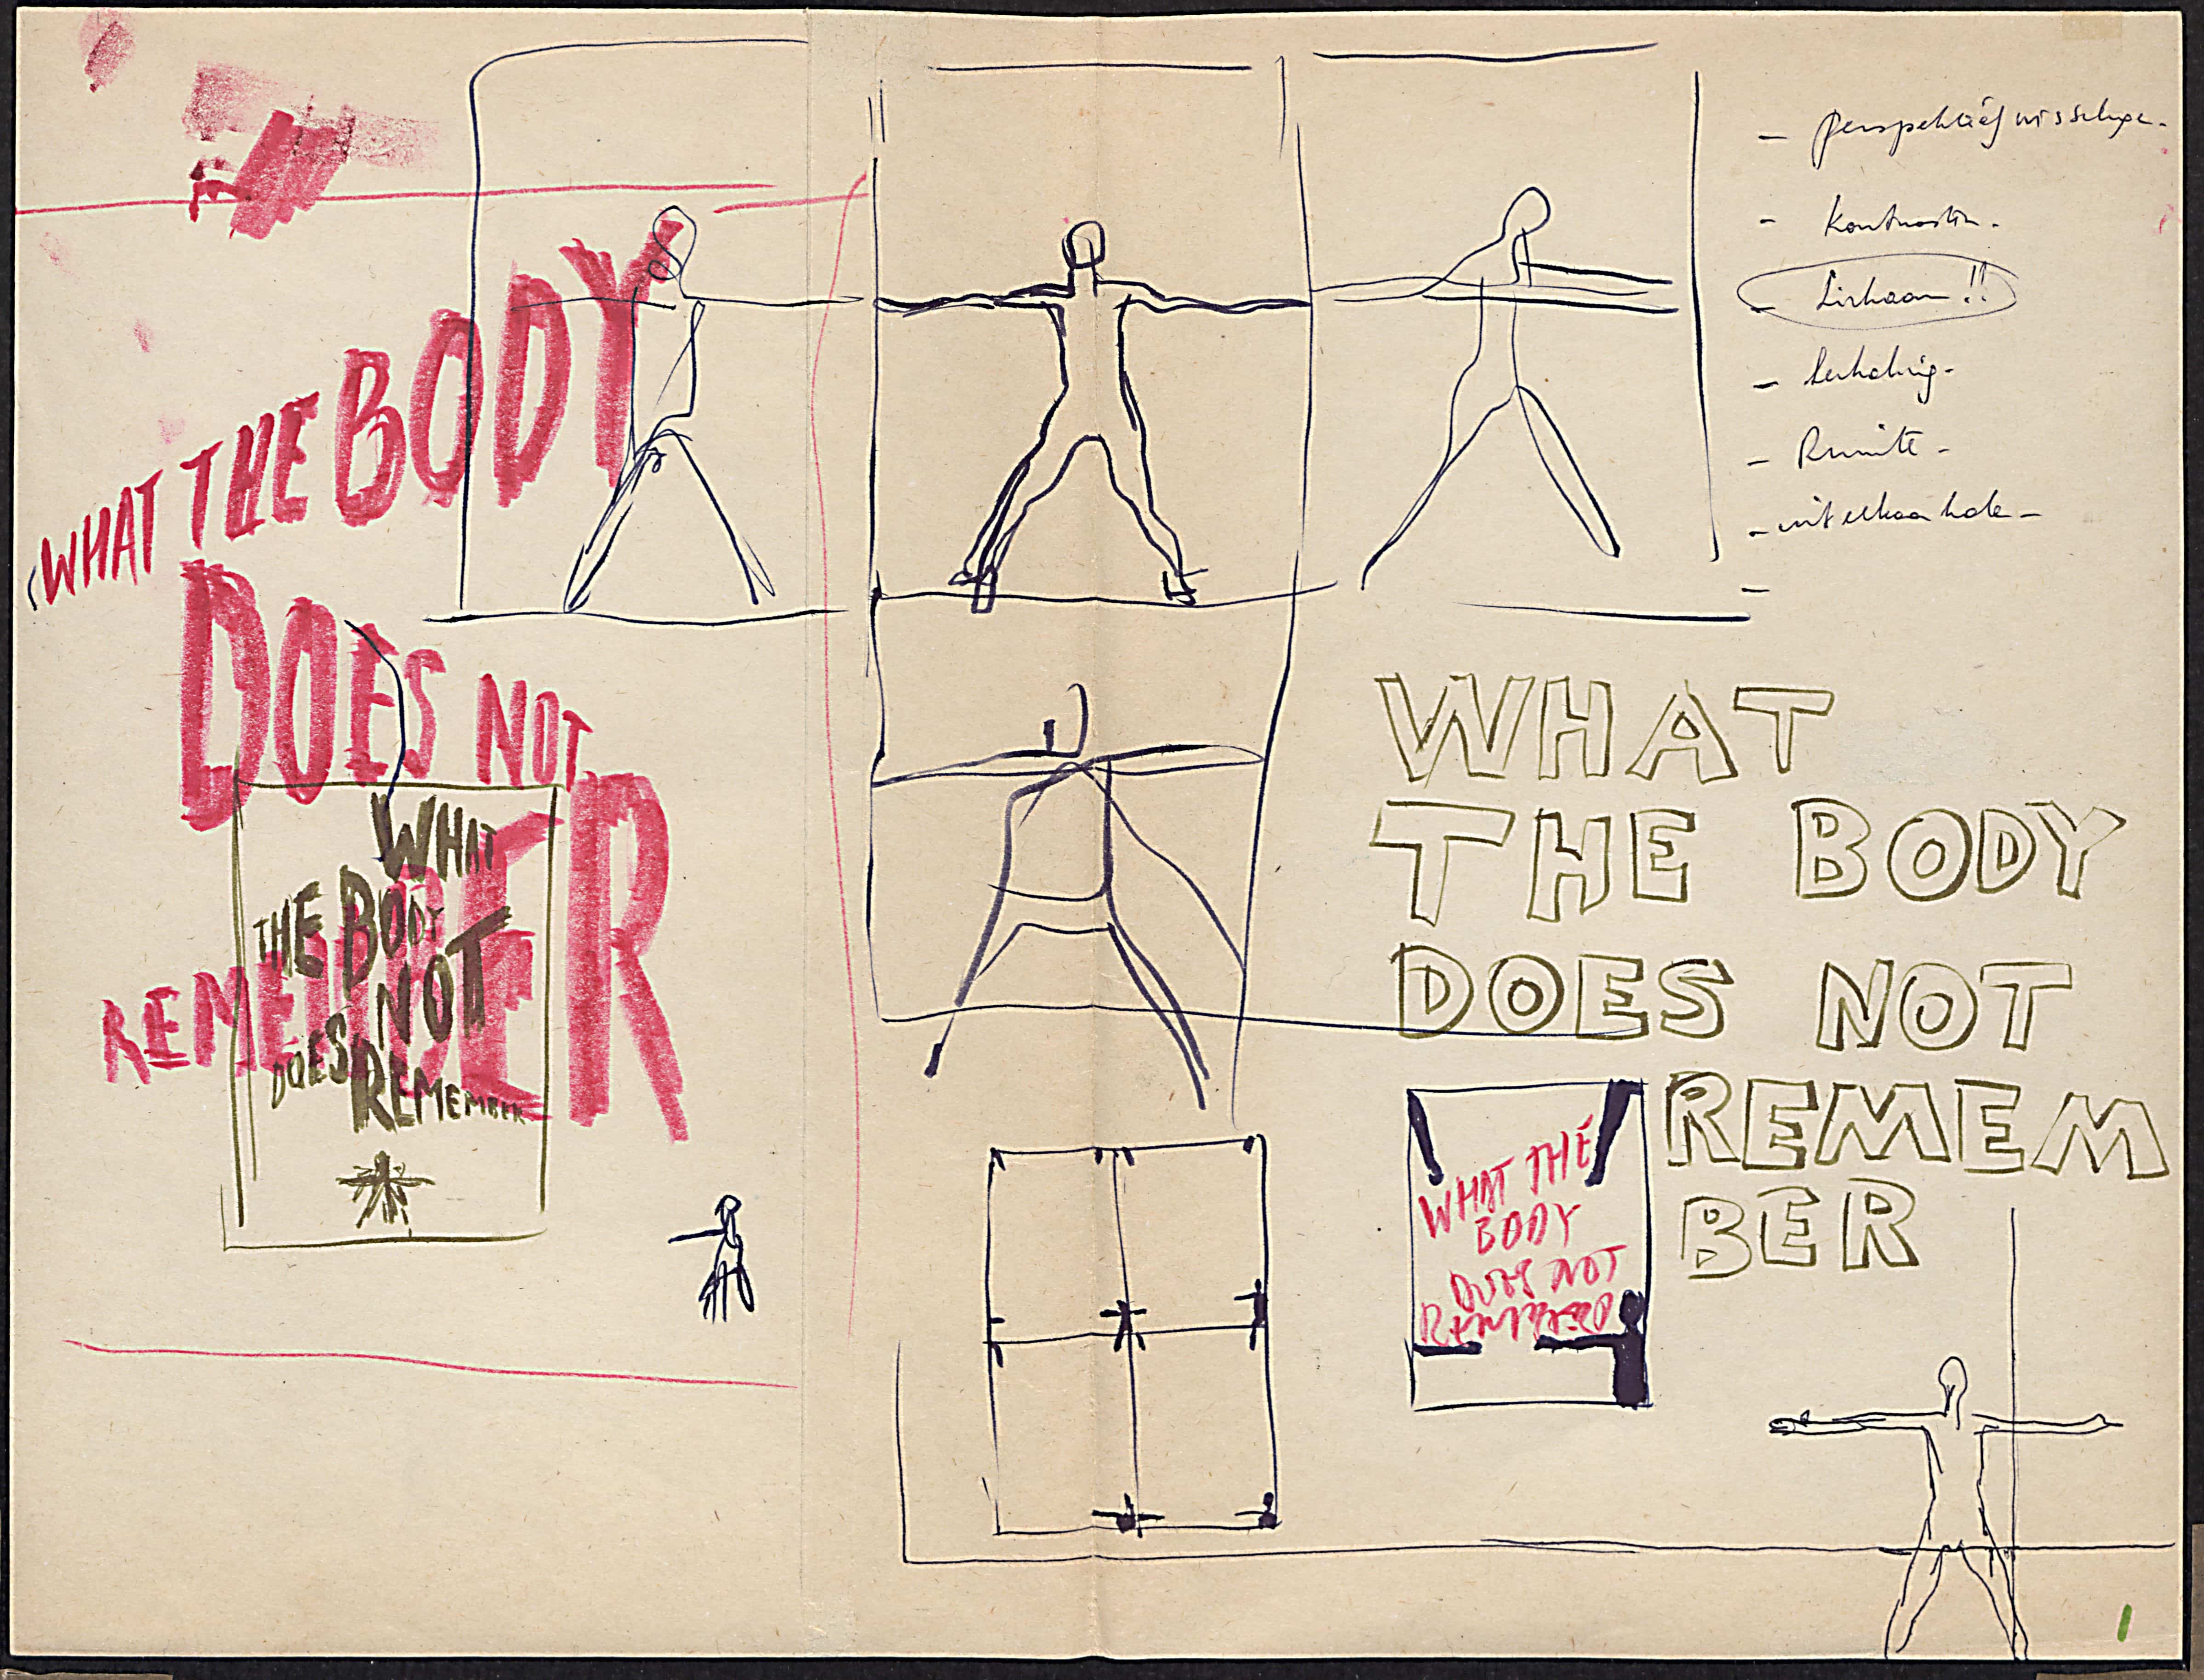 WHAT THE BODY
DOES NOT
REMEMBER
WHAT
THE BODY
NOT
DOES
REMEMBER
- kontrasten.
- Lichaam!!
- herhaling-
- Ruimte-
- uit elkaar halen-
-
WHAT
THE BODY
DOES NOT
REMEM
BER
WHAT THE
BODY
DOES NOT
REMEMBER